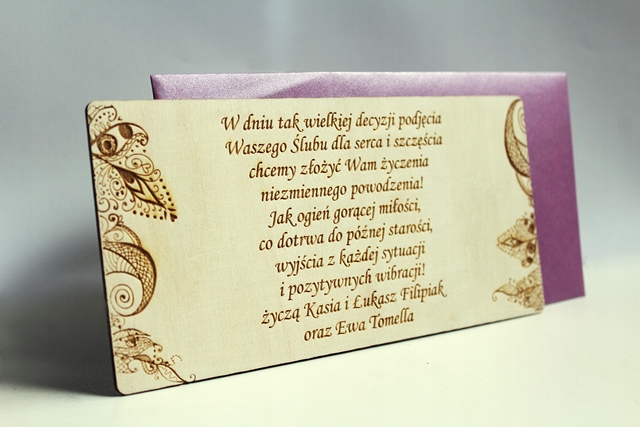 W dniu tak wielkiej decyzji podjęcia
Waszego Ślubu dla serca i szczęścia
chcemy złożyć Wam życzenia
niezmiennego powodzenia!
Jak ogień gorącej miłości,
co dotrwa do późnej starości,
wyjścia z każdej sytuacji
i pozytywnych wibracji!
życzą Kasia i Łukasz Filipiak
oraz Ewa Tomella